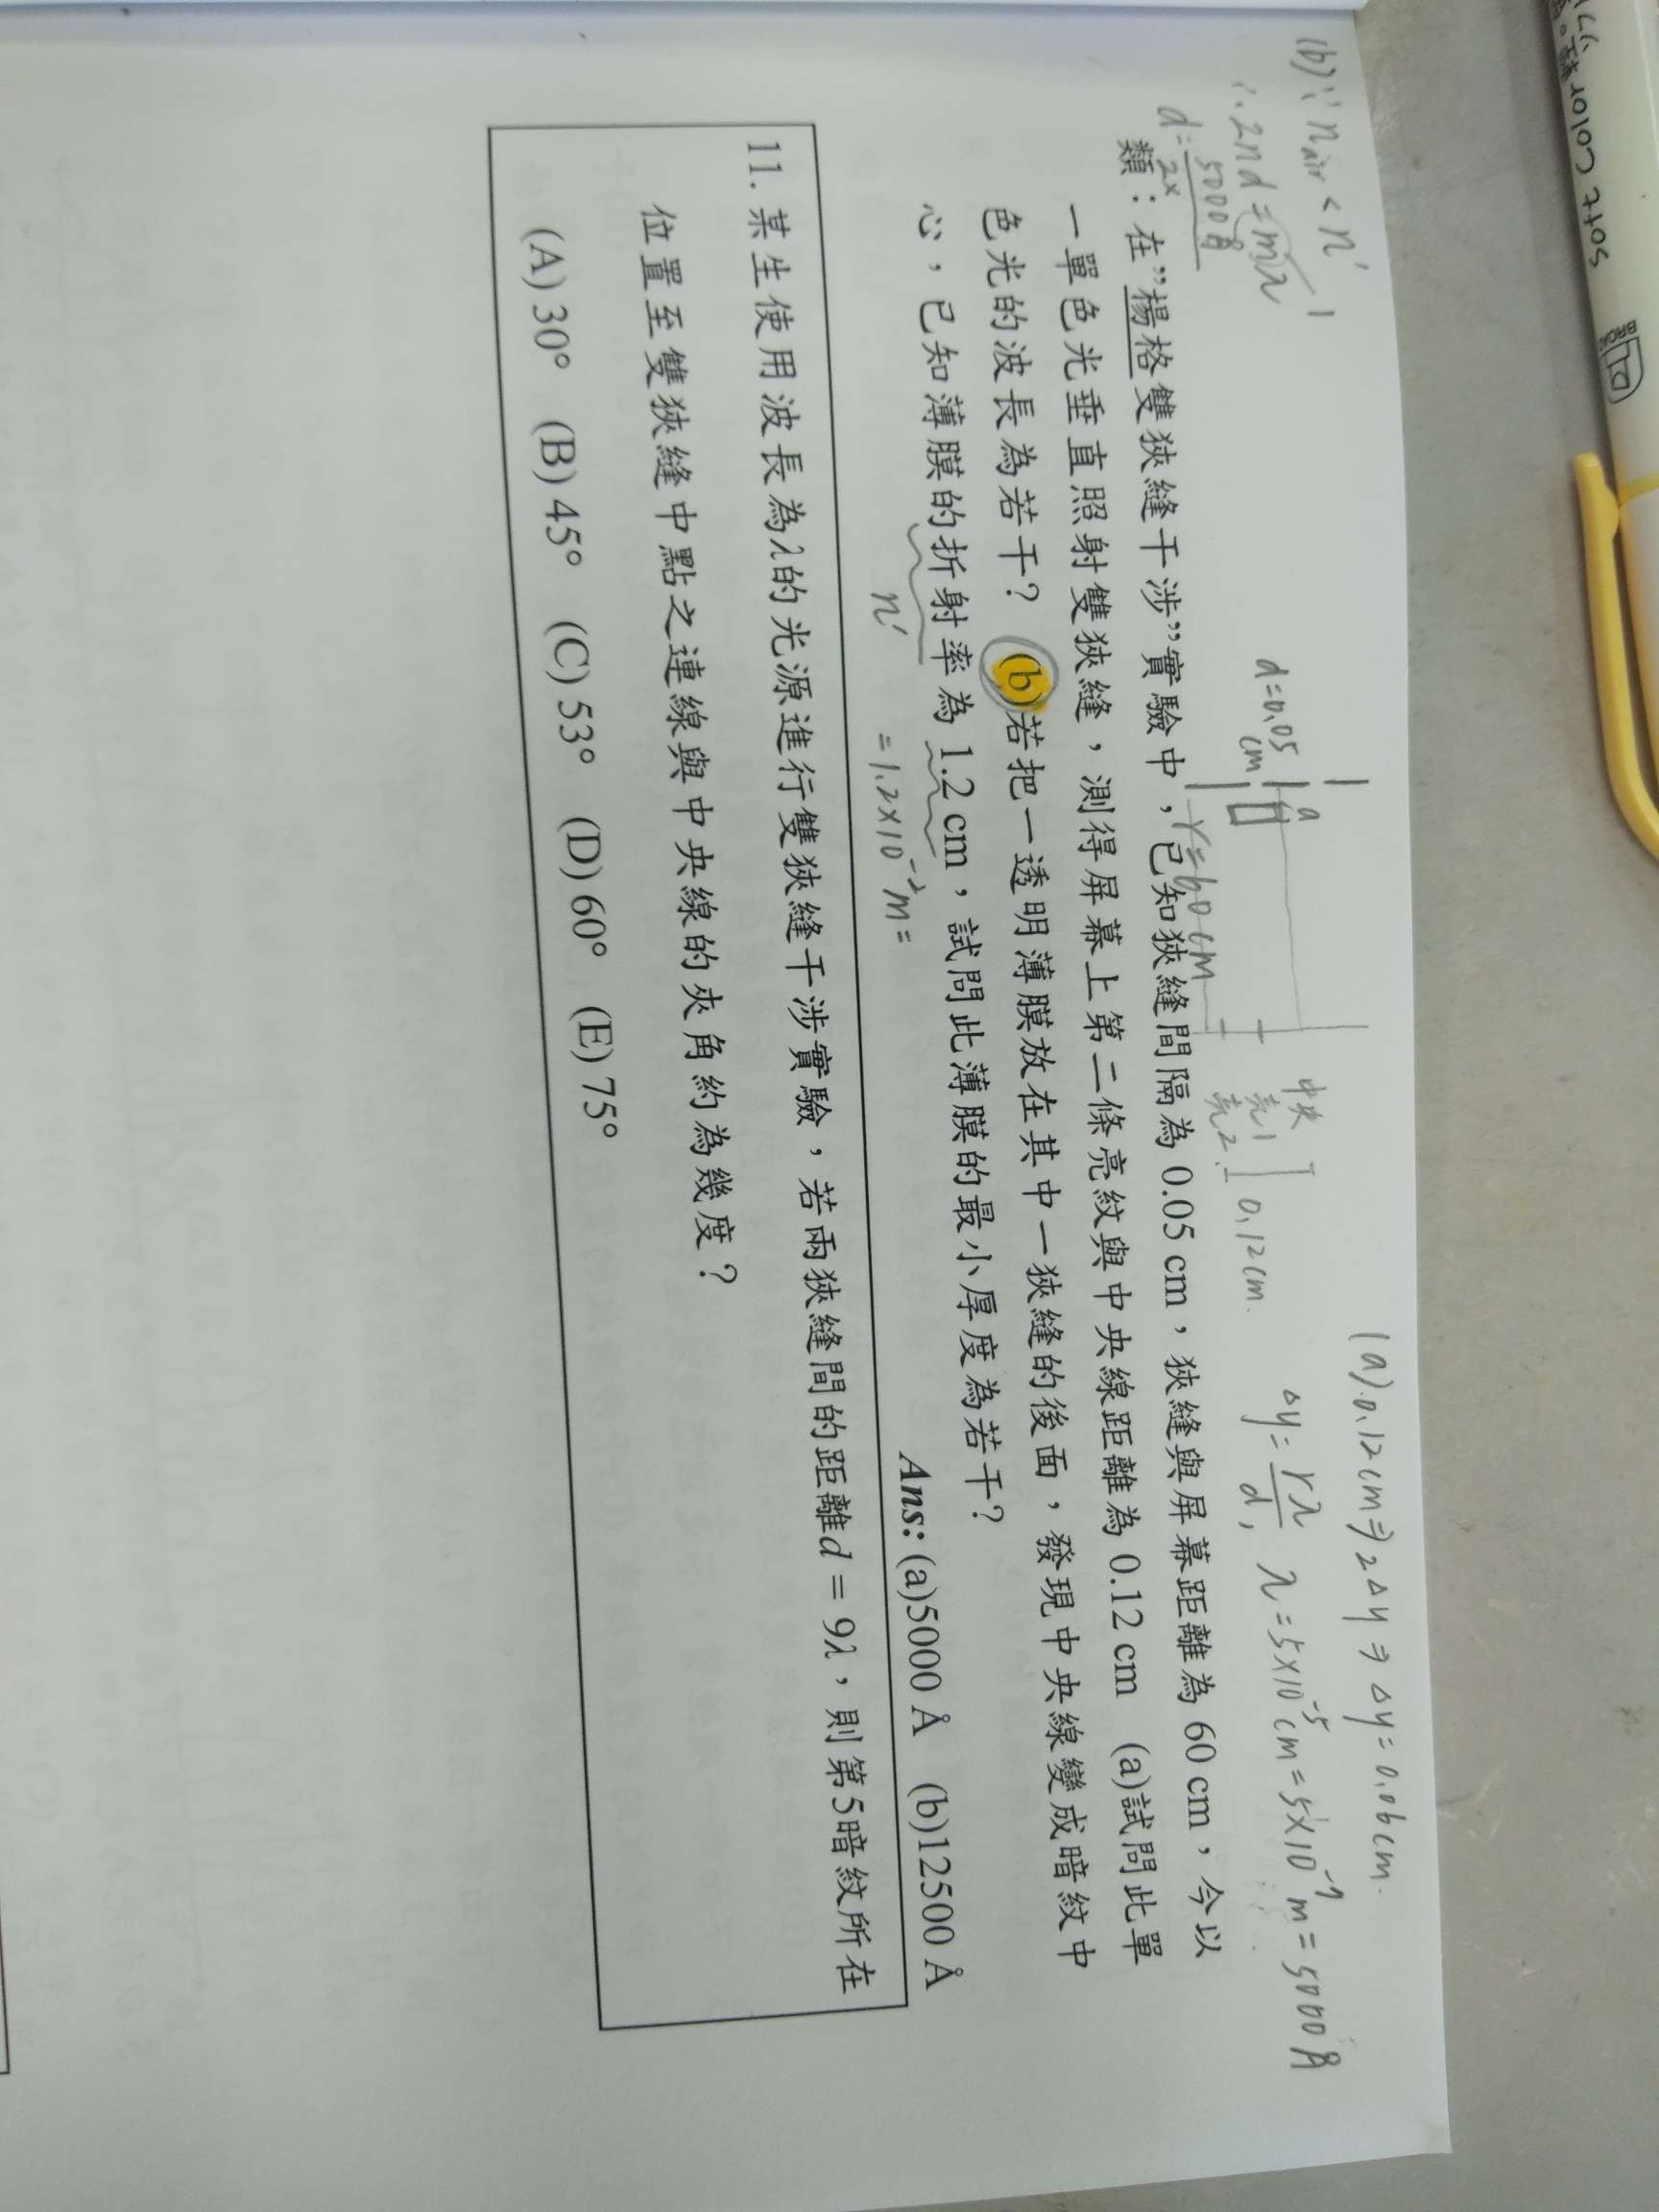 (a).0.12cm⇒2△y⇒△y=0.06cm.
△y=rλ/d, λ=5×10⁻⁵cm=5×10⁻⁷m=5000Å
(b)∵n air<n'
∴2nd=mλ
d=5000Å/2×
d=0.05
cm
a
r=60cm
中央
亮1
亮2
0.12cm.
類：在”楊格雙狹縫干涉”實驗中，已知狹縫間隔為 0.05 cm，狹縫與屏幕距離為 60 cm，今以
一單色光垂直照射雙狹縫，測得屏幕上第二條亮紋與中央線距離為 0.12 cm (a)試問此單
色光的波長為若干？ (b)若把一透明薄膜放在其中一狹縫的後面，發現中央線變成暗紋中
心，已知薄膜的折射率為 1.2 cm，試問此薄膜的最小厚度為若干？
n'
=1.2×10⁻²m=
Ans: (a)5000 Å (b)12500 Å
11. 某生使用波長為λ的光源進行雙狹縫干涉實驗，若兩狹縫間的距離d = 9λ，則第5暗紋所在
位置至雙狹縫中點之連線與中央線的夾角約為幾度？
(A) 30° (B) 45° (C) 53° (D) 60° (E) 75°
Soft Color